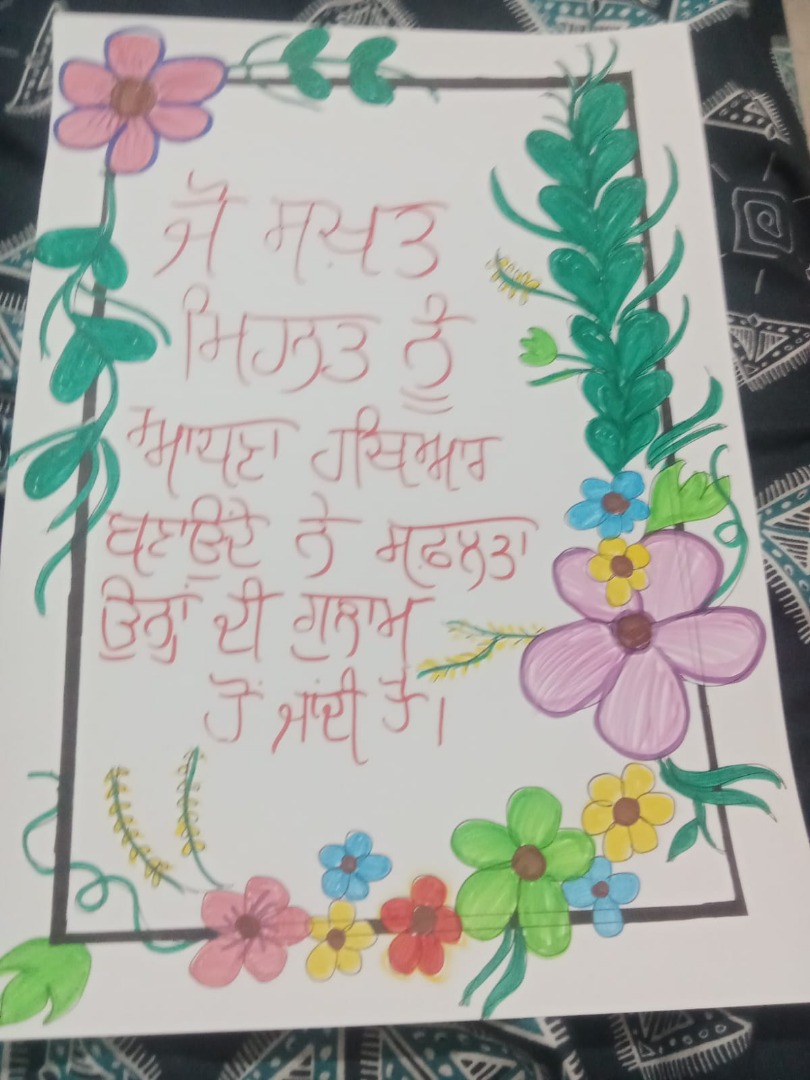 ਜੋ ਸਖ਼ਤ
ਮਿਹਨਤ ਨੂੰ
ਆਪਣਾ ਹਥਿਆਰ
ਬਣਾਉਂਦੇ ਨੇ ਸਫ਼ਲਤਾ
ਉਨ੍ਹਾਂ ਦੀ ਗੁਲਾਮ
ਹੋ ਜਾਂਦੀ ਹੈ।